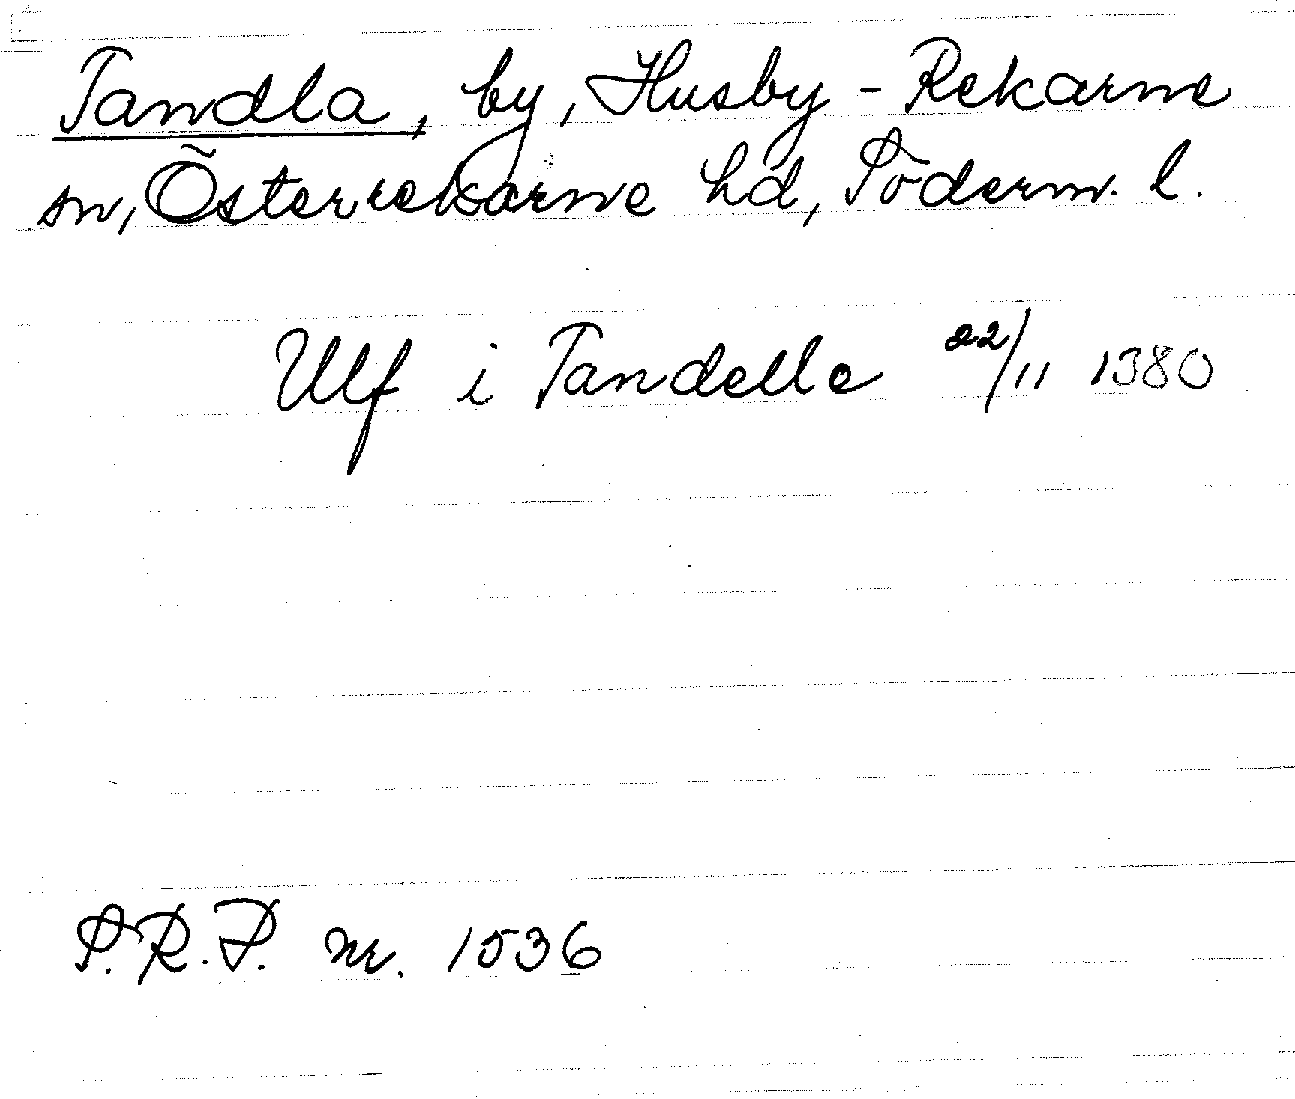 Tandla, by, Husby-Rekarne
sn, Österrekarne hd, Söderm. l.
Ulf i Tandelle 22/11 1380
S.R.P. nr. 1536